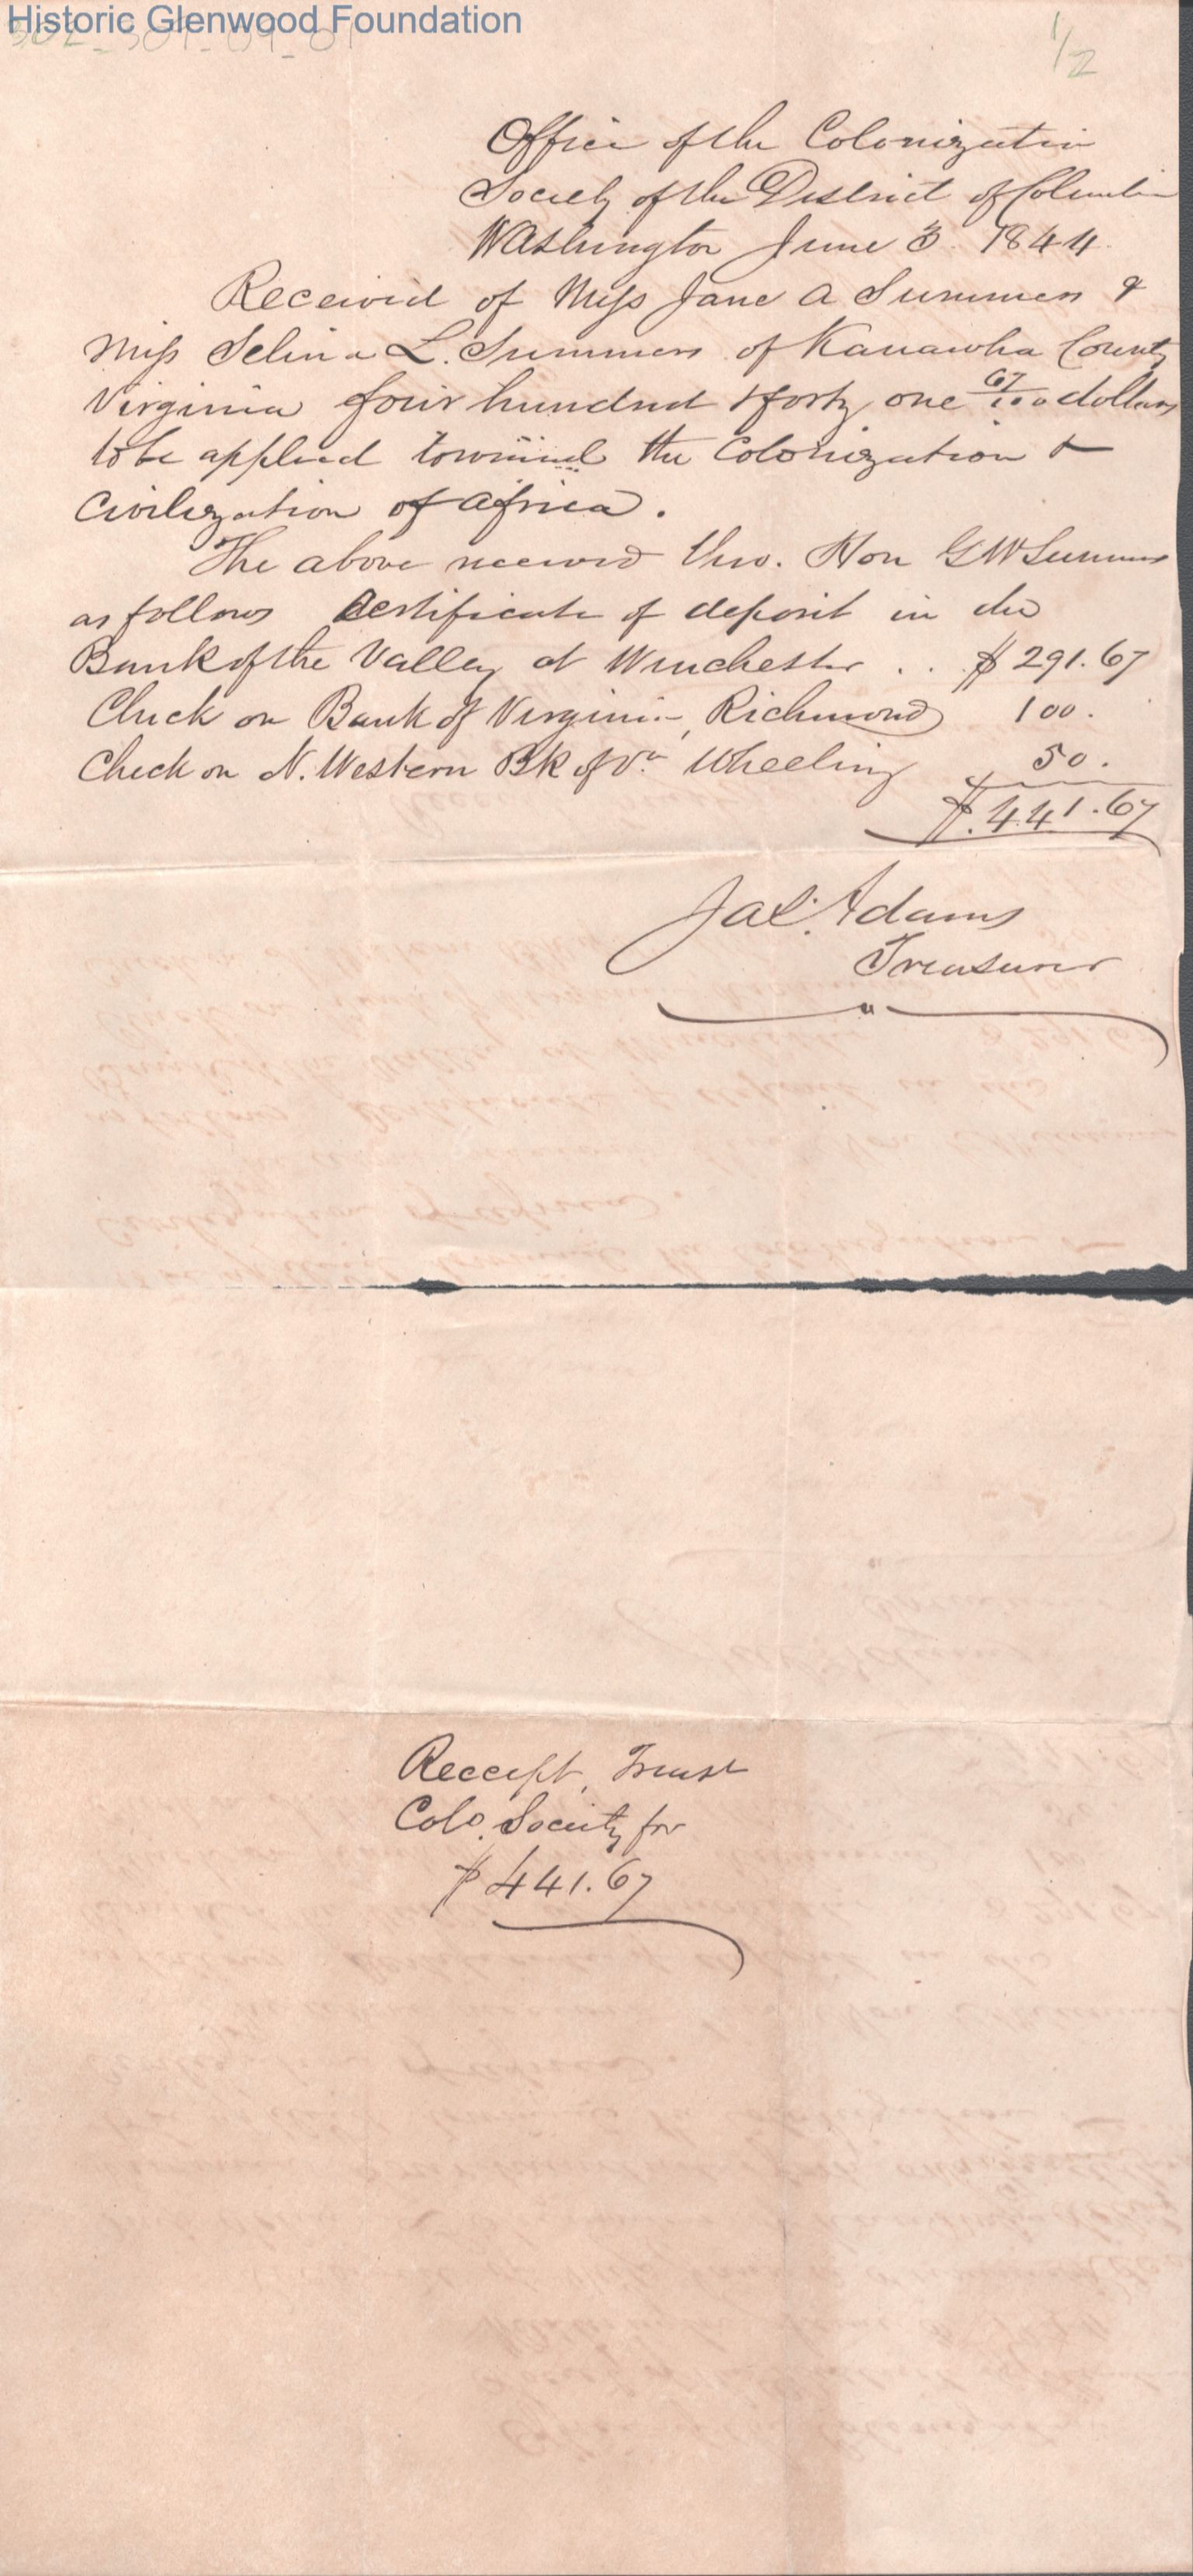 Historic Glenwood Foundation
302-301-09-01
1/2
Office of the Colonization
Society of the District of Columbia
Washington June 3. 1844.
Received of Miss Jane A Summers &
Miss Selina L. Summers of Kanawha County
Virginia four hundred & forty one 67/100 dollars
to be applied toward the Colonization &
Civilization of Africa.
The above received thro. Hon G W Summers
as follows Certificate of deposit in the
Bank of the Valley at Winchester . . $ 291.67
Check on Bank of Virginia, Richmond 100.
Check on N. Western Bk of Va. Wheeling 50.
$.441.67
Jas. Adams
Treasurer
Receipt, Treasr
Colo. Society for
$ 441.67